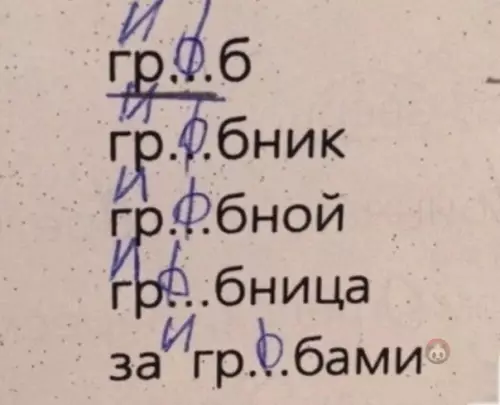 и
гр...б
и
гр...бник
и
гр...бной
и
гр...бница
и
за гр...бами